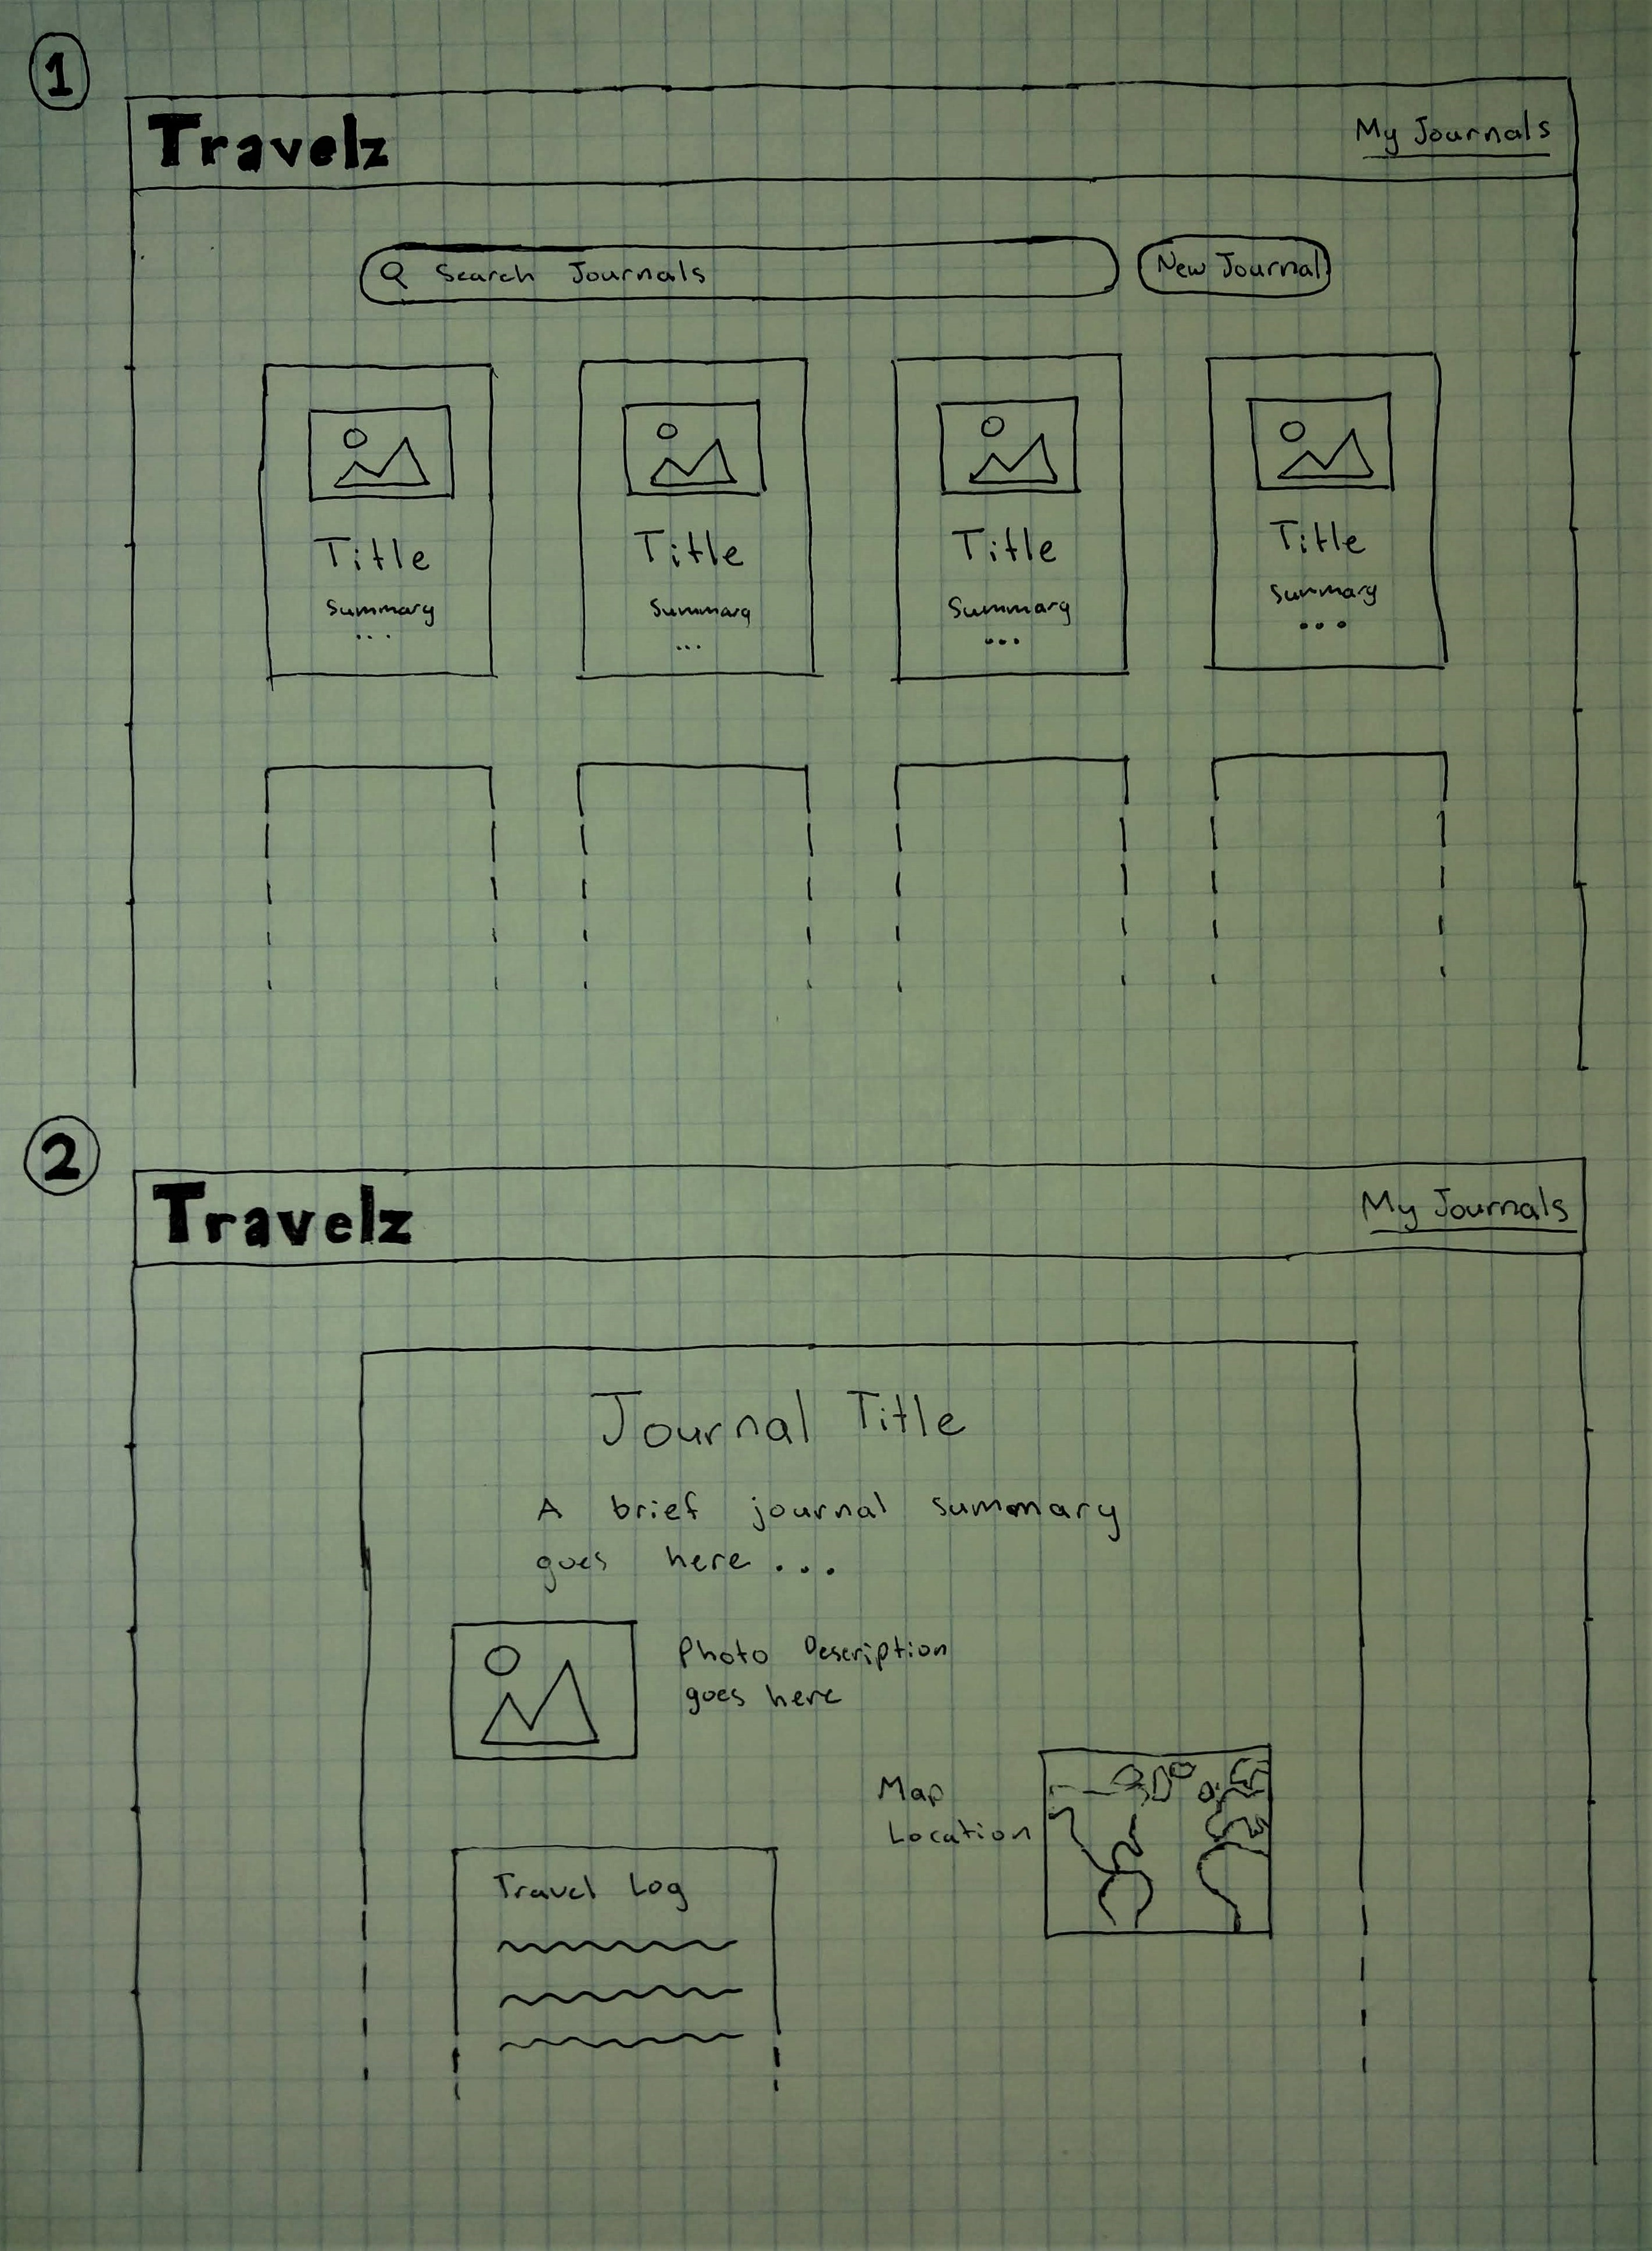 1
Travelz
My Journals
Search Journals
New Journal
Title
Title
Title
Title
Summary
Summary
Summary
Summary
...
...
...
...
2
Travelz
My Journals
Journal Title
A brief journal summary
goes here ...
Photo Description
goes here
Map
Location
Travel Log